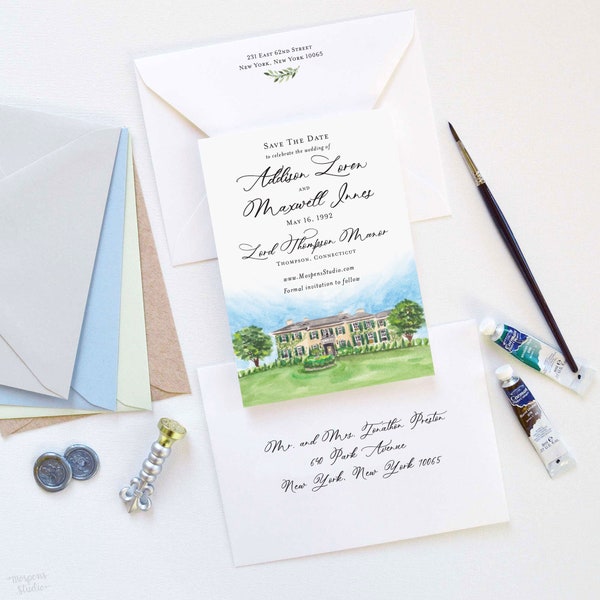 231 East 62nd Street
New York, New York 10065
Save The Date
to celebrate the wedding of
Addison Loren
and
Maxwell Innes
May 16, 1992
Lord Thompson Manor
Thompson, Connecticut
www.MospensStudio.com
Formal invitation to follow
Mr. and Mrs. Jonathon Preston
640 Park Avenue
New York, New York 10065
Mospens
Studio